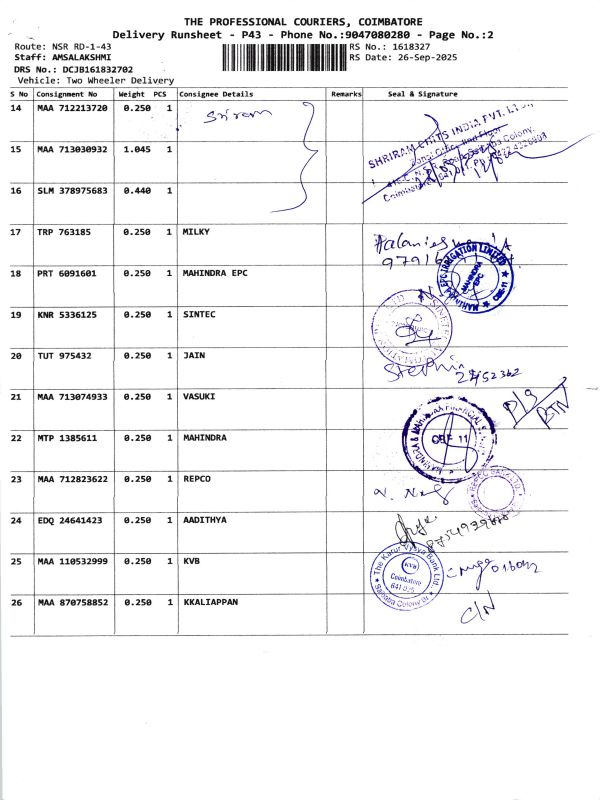 THE PROFESSIONAL COURIERS, COIMBATORE
Delivery Runsheet - P43 - Phone No.:9047080280 - Page No.:2
Route: NSR RD-1-43 RS No.: 1618327
Staff: AMSALAKSHMI RS Date: 26-Sep-2025
DRS No.: DCJB161832702
Vehicle: Two Wheeler Delivery
S No Consignment No Weight PCS Consignee Details Remarks Seal & Signature
14 MAA 712213720 0.250 1 Sriram
SHRIRAM CHITS INDIA PVT. LTD.
15 MAA 713030932 1.045 1
16 SLM 378975683 0.440 1
17 TRP 763185 0.250 1 MILKY
18 PRT 6091601 0.250 1 MAHINDRA EPC
MAHINDRA EPC IRRIGATION LIMITED
MAHINDRA
EPC
CBE-11
19 KNR 5336125 0.250 1 SINTEC
20 TUT 975432 0.250 1 JAIN
Stephin
21 MAA 713074933 0.250 1 VASUKI
P/9
BTN
22 MTP 1385611 0.250 1 MAHINDRA
23 MAA 712823622 0.250 1 REPCO
24 EDQ 24641423 0.250 1 AADITHYA
25 MAA 110532999 0.250 1 KVB
The Karur Vysya Bank Ltd.,
KVB
Coimbatore
641 025
Saibaba Colony Br
26 MAA 870758852 0.250 1 KKALIAPPAN
C/N